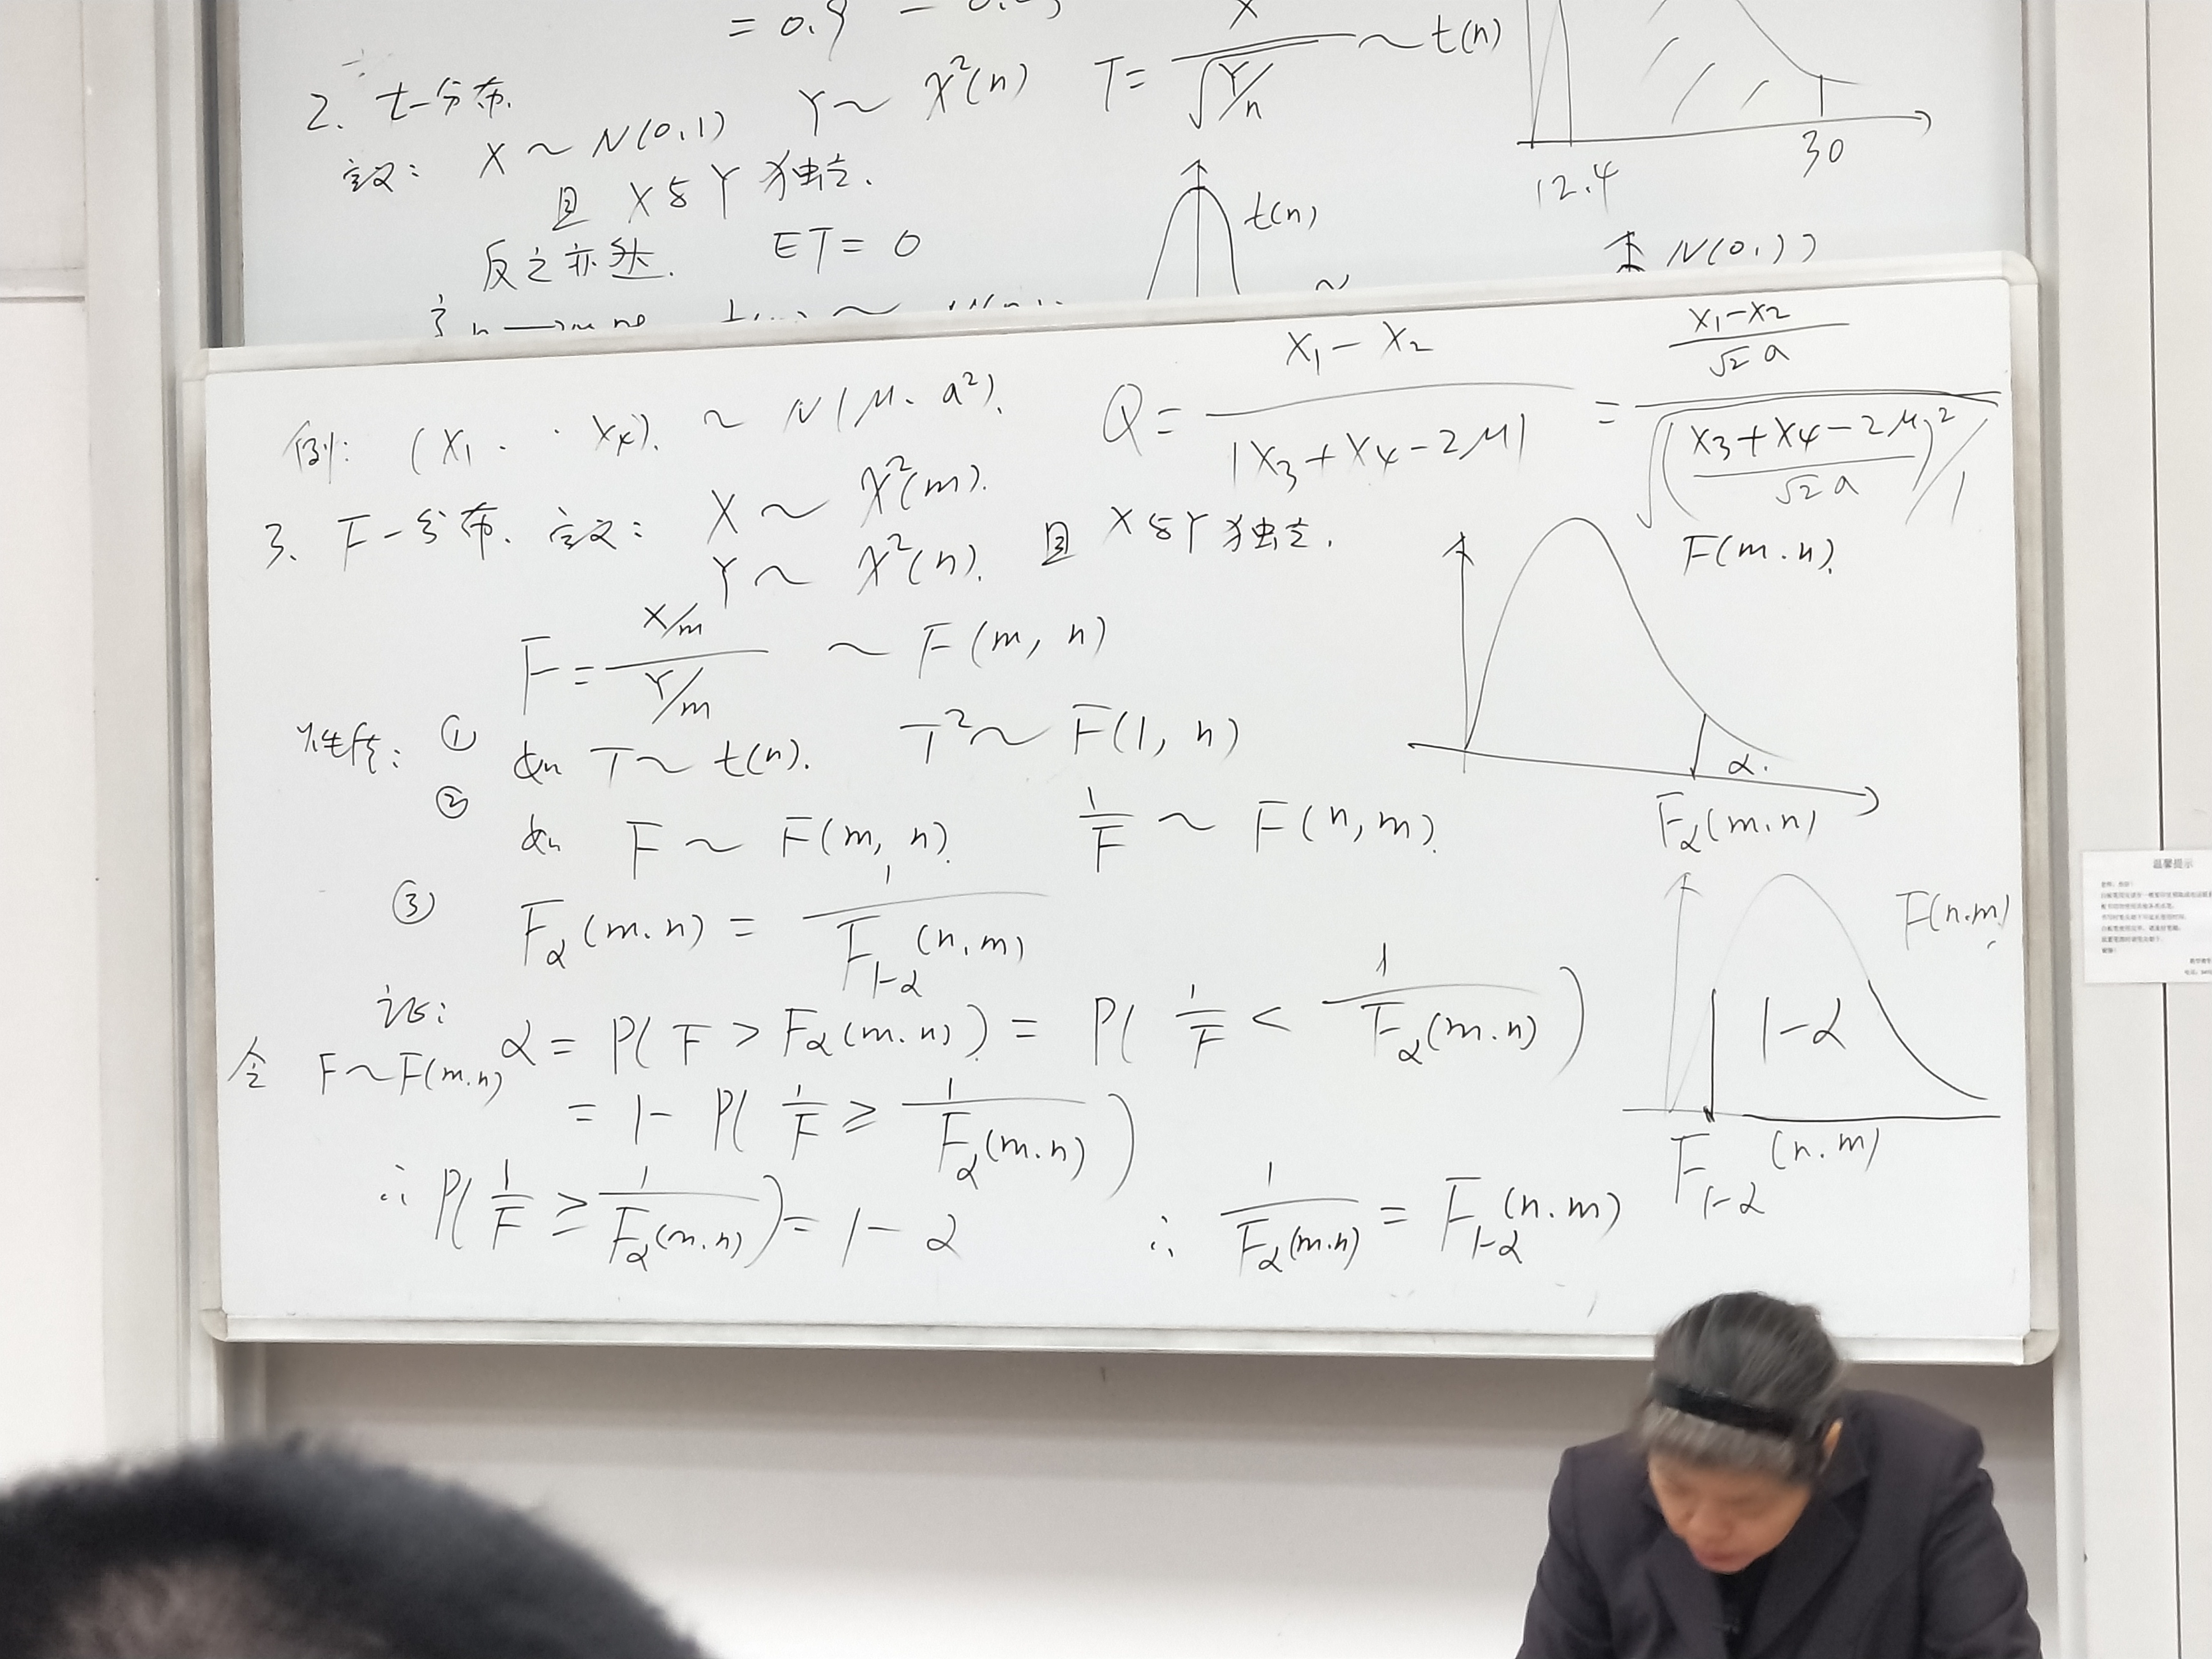 = 0.9 -
2. t-分布. X ~ N(0,1) Y ~ χ²(n) T = X / √(Y/n) ~ t(n)
定义: 且 X与Y 独立.
反之亦然. ET = 0
t(n)
12.4 30
N(0,1)
例: (X₁ · · X₄). ~ N(μ、a²). Q = (X₁ - X₂) / |X₃ + X₄ - 2μ| = ((X₁ - X₂) / (√2 a)) / √(((X₃ + X₄ - 2μ) / (√2 a))² / 1)
3. F-分布. 定义: X ~ χ²(m).
Y ~ χ²(n). 且 X与Y 独立.
F = (X/m) / (Y/m) ~ F(m, n)
性质: ① 如 T ~ t(n). T² ~ F(1, n)
② 如 F ~ F(m, n). 1/F ~ F(n, m).
③ F_α(m.n) = 1 / F_{1-α}(n.m)
证:
令 F~F(m.n) α = P( F > F_α(m.n) ) = P( 1/F < 1/F_α(m.n) )
= 1 - P( 1/F ≥ 1/F_α(m.n) )
∴ P( 1/F ≥ 1/F_α(m.n) ) = 1 - α ∴ 1/F_α(m.n) = F_{1-α}(n.m)
F(m.n).
α.
F_α(m.n)
F(n.m)
1-α
F_{1-α}(n.m)
温馨提示